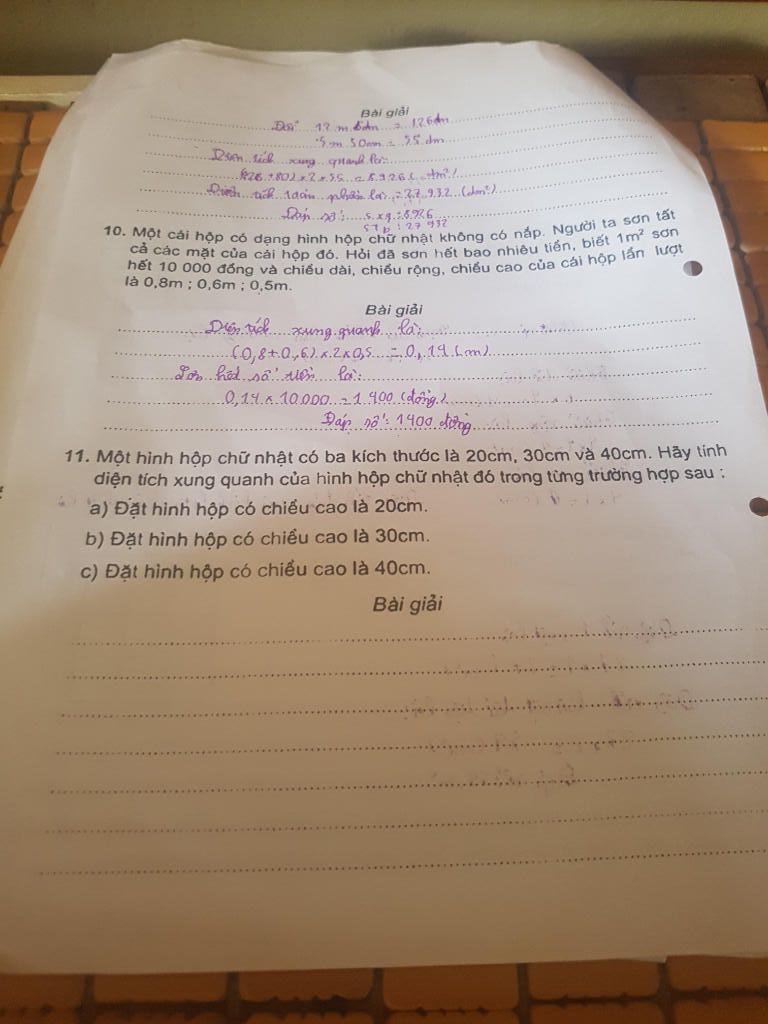 Bài giải
Đổi 12 m 6dm = 126dm
5m 50cm = 55 dm
Diện tích xung quanh là:
(126 + 80) x 2 x 55 =
Diện tích toàn phần là = 27 932 (dm²)
Đáp số: s.xq:
STP: 27 932
10. Một cái hộp có dạng hình hộp chữ nhật không có nắp. Người ta sơn tất
cả các mặt của cái hộp đó. Hỏi đã sơn hết bao nhiêu tiền, biết 1m² sơn
hết 10 000 đồng và chiều dài, chiều rộng, chiều cao của cái hộp lần lượt
là 0,8m ; 0,6m ; 0,5m.
Bài giải
Diện tích xung quanh là:
(0,8+0,6) x 2 x 0,5 = 0,14 (m)
Sơn hết số tiền là:
0,14 x 10 000 = 1 400 (đồng)
Đáp số: 1400 đồng
11. Một hình hộp chữ nhật có ba kích thước là 20cm, 30cm và 40cm. Hãy tính
diện tích xung quanh của hình hộp chữ nhật đó trong từng trường hợp sau :
a) Đặt hình hộp có chiều cao là 20cm.
b) Đặt hình hộp có chiều cao là 30cm.
c) Đặt hình hộp có chiều cao là 40cm.
Bài giải